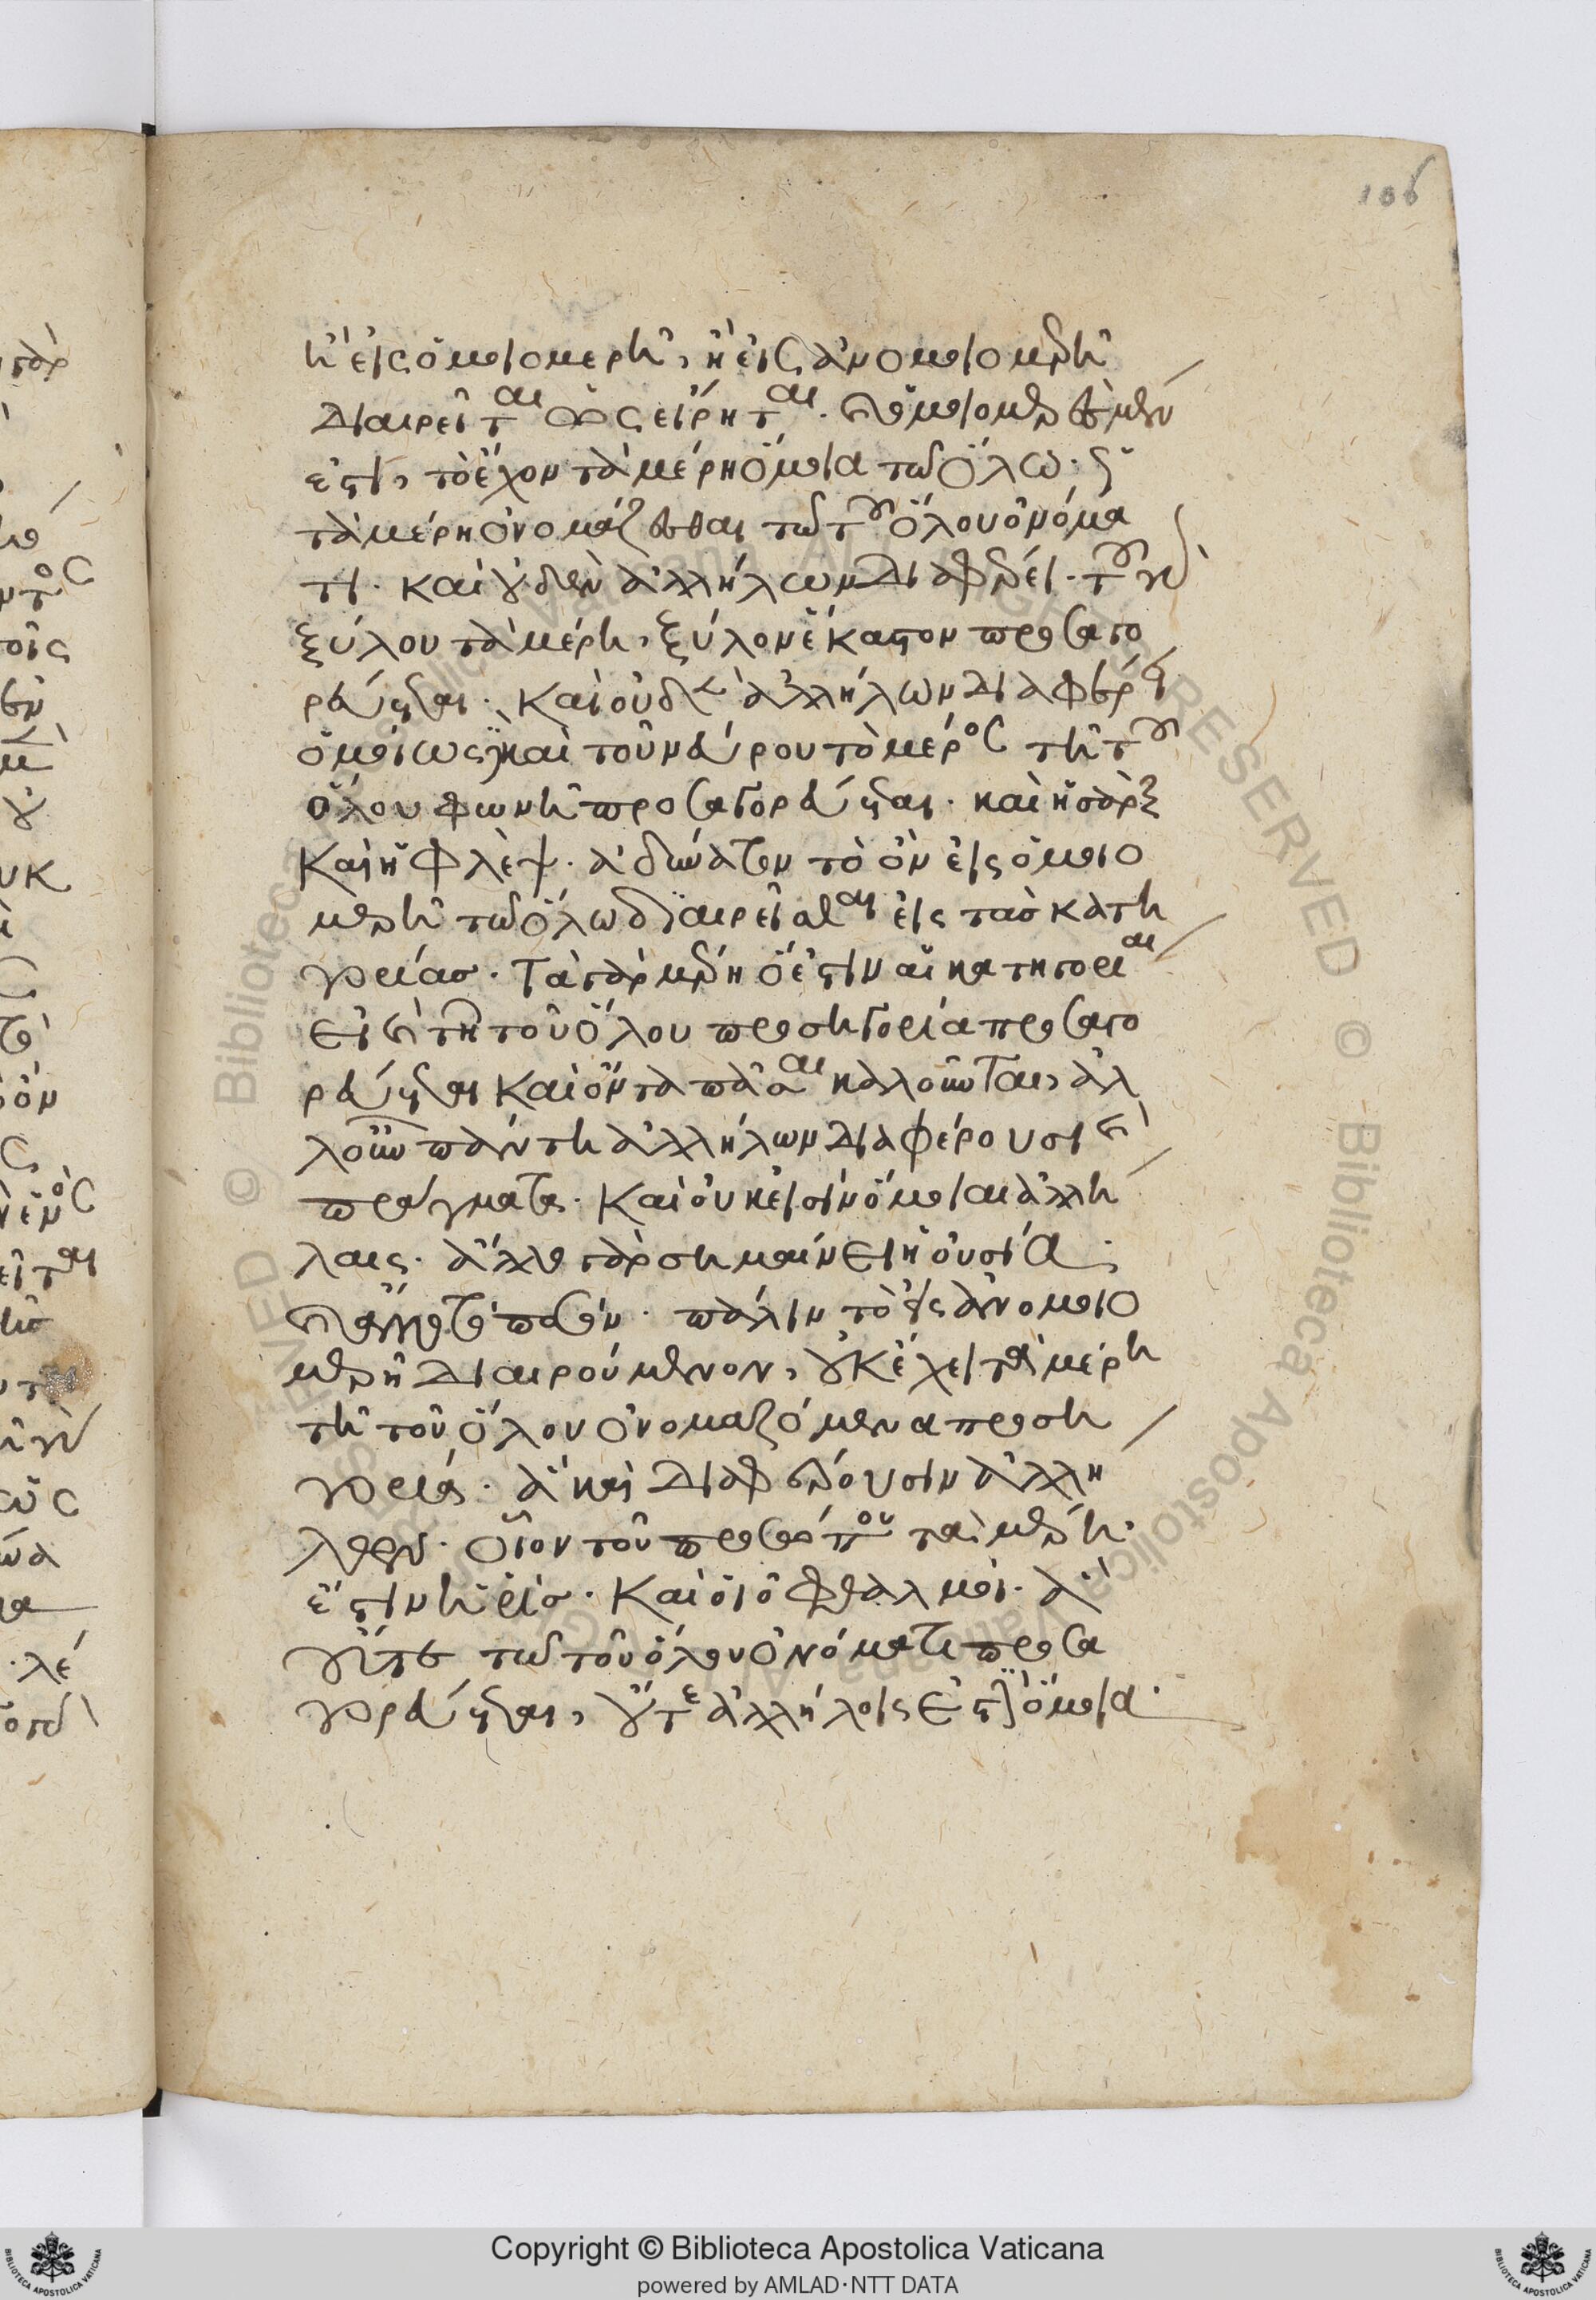 106
ἢ εἰς ὁμοιομερῆ, ἢ εἰς ἀνομοιομερῆ
διαιρεῖται ὡς εἴρηται. τὸ ὁμοιομερὲς μέν
ἐστι, τὸ ἔχον τὰ μέρη ὅμοια τῶ ὅλω· καὶ
τὰ μέρη ὀνομάζεσθαι τῶ τοῦ ὅλου ὀνόμα
τι. καὶ οὐδὲν ἀλλήλων διαφέρει. τοῦ γὰρ
ξύλου τὰ μέρη, ξύλον ἕκαστον προσαγο
ρεύεται. καὶ οὐδὲν ἀλλήλων διαφέρει
ὁμοίως καὶ τοῦ νεύρου τὸ μέρος τῆ τοῦ
ὅλου φωνῆ προσαγορεύεται. καὶ ἡ σὰρξ
καὶ ἡ φλέψ. ἀδύνατον τὸ ὂν εἰς ὁμοιο
μερῆ τῶ ὅλω διαιρεῖσθαι εἰς τὰς κατη
γορίας. τὰ γὰρ μέρη ὅ ἐστιν αἱ κατηγορίαι
εἰ καὶ τῆ τοῦ ὅλου προσηγορία προσαγο
ρεύεται καὶ ὄντα πᾶσαι καλοῦνται, ἀλ
λ' οὖν πάντη ἀλλήλων διαφέρουσι κατὰ
πράγματα. καὶ οὐκ εἰσὶν ὅμοιαι ἀλλή
λαις. ἄλλο γὰρ σημαίνει ἡ οὐσία.
καὶ ἄλλο τὸ ποσόν. πάλιν τὸ εἰς ἀνομοιο
μερῆ διαιρούμενον, οὐκ ἔχει τὰ μέρη
τῆ τοῦ ὅλου ὀνομαζόμενα προση
γορία. ἃ καὶ διαφέρουσιν ἀλλή
λων. οἷον τοῦ προσώπου τὰ μέρη.
ἔστιν ἡ ῥίς. καὶ οἱ ὀφθαλμοί. ἃ
οὔτε τῶ τοῦ ὅλου ὀνόματι προσα
γορεύεται, οὔτε ἀλλήλοις ἐστὶν ὅμοια.
Copyright © Biblioteca Apostolica Vaticana
powered by AMLAD·NTT DATA